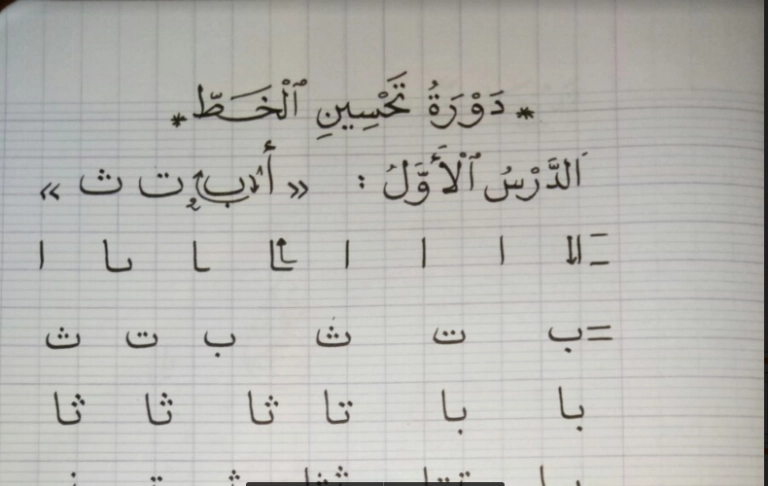 * دَوْرَةُ تَحْسِينِ ٱلْخَطّ *
اَلدَّرْسُ ٱلْأَوَّلُ : « أ ب ت ث »
= ا ا ا ا ا
= ب ت ث ب ت ث
با با تا ثا ثا ثا